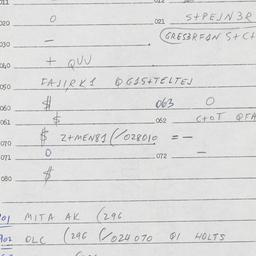 011 012
020 0 021 S+PEJN3R
030 - (GRES3RFON S+C+
040 + QUU
050 FAJIRK1 QG1S+TELTEJ
060 # 063 0
061 $ 062 C+OT QFA
070 $ Z+MEN81 (/028010 = -
071 0 072 -
080 $
901 MITA AK (296
902 DLC (296 (/024070 Q1 HOLTS